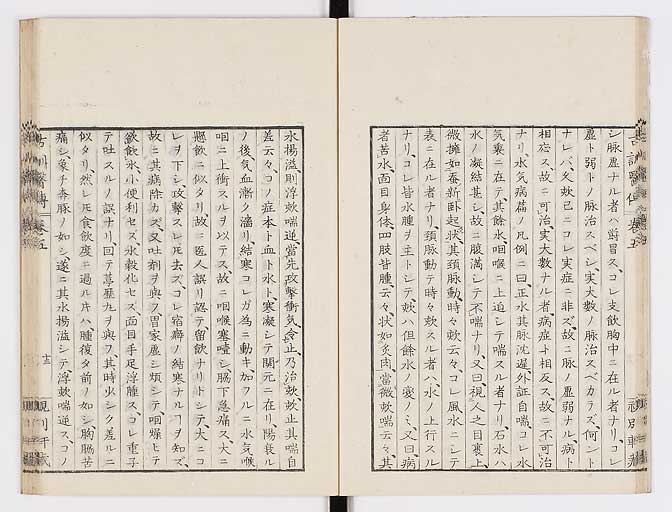 シ脉虚ナル者ハ欝冒ス、コレ支飲胸中ニ在ル者ナリ、コレ
虚ト弱トノ脉治スベシ、実大数ノ脉治スベカラズ、何ント
ナレバ、久欬已ニコレ実症ニ非ズ、故ニ脉ノ虚弱ナル病ト
相応ス、故ニ可治、実大数ナル者、病症ト相反ス、故ニ不可治
ナリ、水気病篇ノ凡例ニ曰正水其脉沈遅外証自喘コレ水
気裏ニ在テ、其餘水咽喉ニ上迫シテ喘スル者ナリ、石水ハ
水ノ凝結甚シ、故ニ腹満シテ不喘ナリ、又曰視人之目裏上
微擁如蚕新卧起状其頚脉動時々欬云々コレ風水ニシテ
表ニ在ル者ナリ、頚脉動テ時々欬スル者ハ、水ノ上行スル
ナリ、コレ皆水腫ヲ主トシテ、欬ハ但餘水ノ変ノミ、又曰病
者苦水面目身体四肢皆腫云々状如炙肉當微欬喘云々、其
水揚溢則浮欬喘逆當先攻撃衝気令止乃治欬欬止其喘自
差云々、コノ症本ト血ト水ト寒凝シテ関元ニ在リ、陽衰ル
ノ後、気血漸ク濇リ、結寒コレガ為ニ動キ、如フルニ水気喉
咽ニ上衝スルヲ以テス、故ニ咽喉塞噎シテ、脇下急痛ス、大ニ
懸飲ニ似タリ、故ニ医人誤リ認テ留飲ナリトシテ、大ニコ
レヲ下シ、攻撃スレ𪜈去ズ、コレ宿癖ノ結寒ナルヿヲ知ズ、
故ニ其病除カズ、又吐剤ヲ與フ、胃家虚シ煩シテ、咽燥トテ
欲飲水小便利セス、水穀化セス、面目手足浮腫ス、コレ重子
テ吐スルノ誤ナリ、回テ葶藶丸ヲ與フ、其時少ク差ルニ
似タリ、然レ𪜈食飲度ニ過ル片ハ、腫復タ前ノ如シ、胸脇苦
痛シ、象チ奔豚ノ如シ、遂ニ其水揚溢シテ、浮欬喘逆ス、コノ
巻五
十三